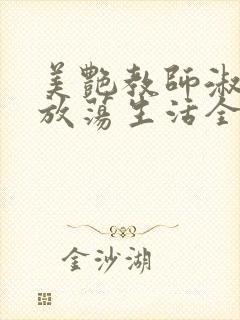 美艷教師淑
放蕩生活全
金沙湖